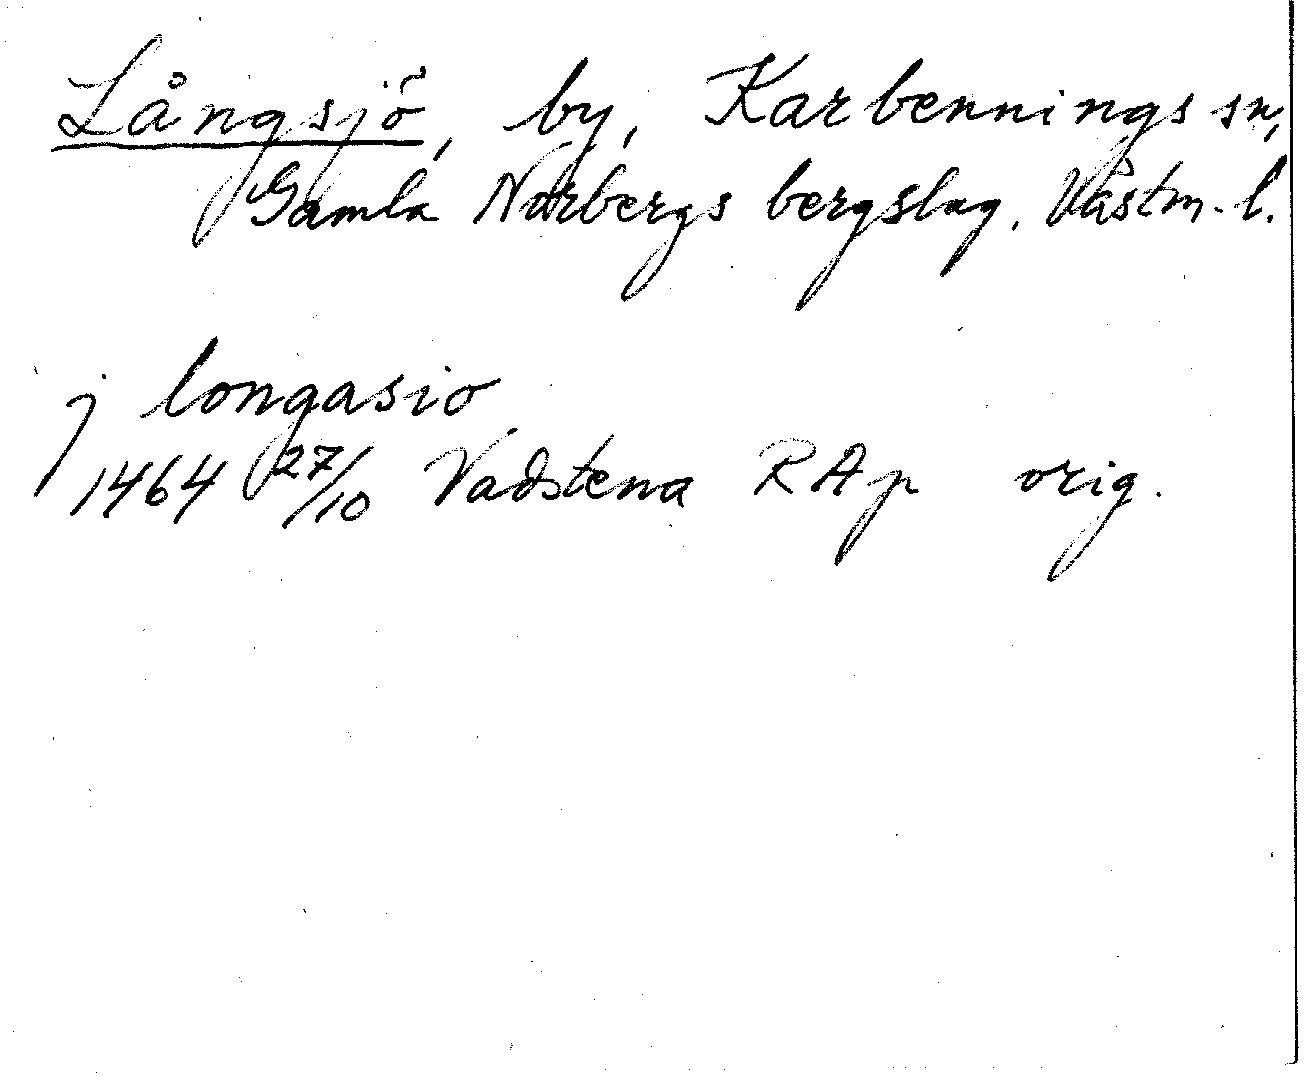 Långsjö, by, Karbennings sn,
Gamla Norbergs bergslag, Västm. l.
j longasio
1464 27/10 Vadstena RAp orig.